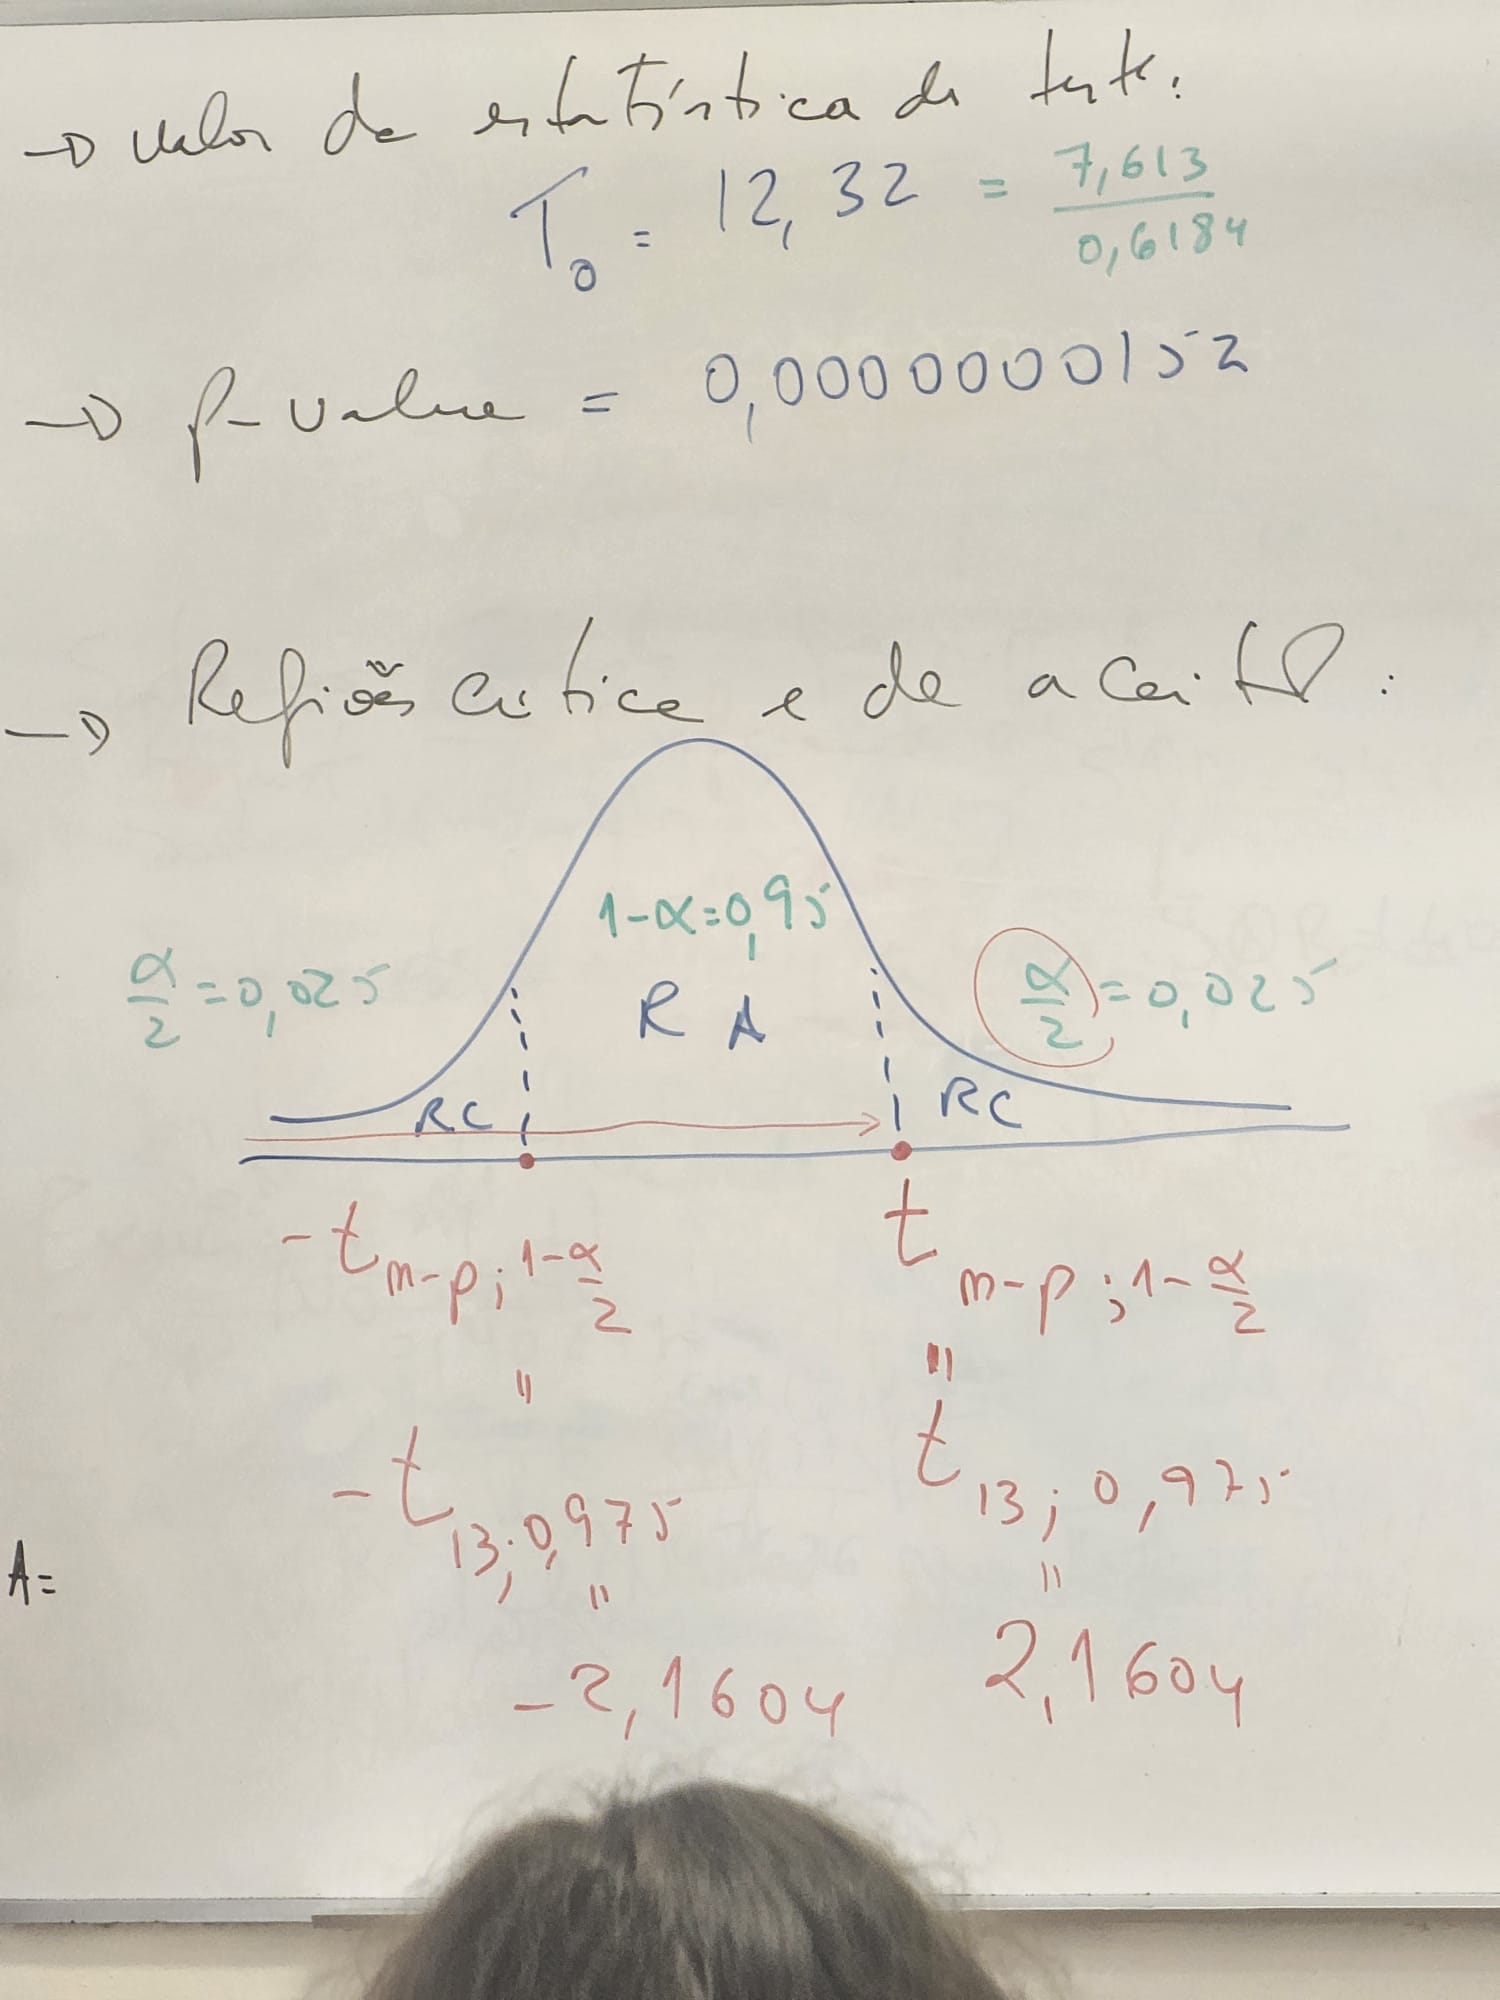 → valor da estatística de teste:
T₀ = 12,32 = 7,613 / 0,6184
→ p-value = 0,0000000152
→ Regiões crítica e de aceitP:
1-α=0,95
α/2 = 0,025
α/2 = 0,025
R A
RC
RC
-t m-p; 1-α/2
t m-p; 1-α/2
"
"
-t 13; 0,975
t 13; 0,975
A=
"
"
-2,1604
2,1604